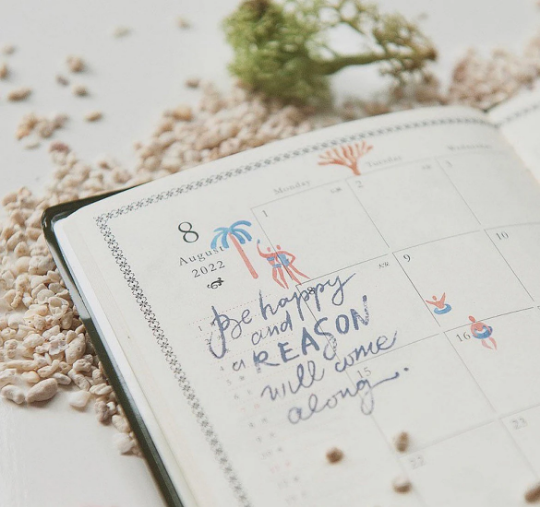 Monday
Tuesday
1
2
3
8
August
2022
9
10
Be happy
and
a REASON
will come
along.
15
16
22
23